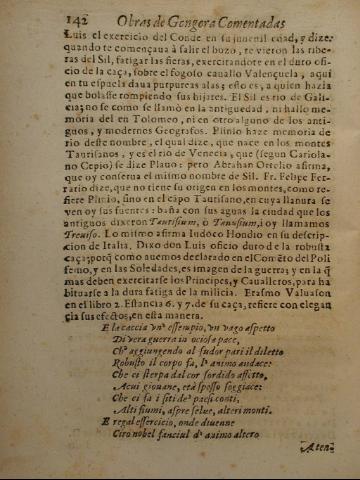 142 Obras de Gongora Comentadas
Luis el exercicio del Conde en su juuenil edad, y dize:
quando te començaua à salir el bozo, te vieron las ribe-
ras del Sil, fatigar las fieras, exercitandote en el duro ofi-
cio de la caça, sobre el fogoso cauallo Valençuela, aquì
en tu espuela daua purpureas alas; esto es, a quien hazia
que bolasse rompiendo sus hijares. El Sil es rio de Gali-
cia; no se como se llamò en la antiguedad, ni hallo me-
moria del en Tolomeo, ni en otro alguno de los anti-
guos, y modernos Geografos. Plinio haze memoria de
rio deste nombre, el qual dize, que nace en los montes
Taurisanos, y es el rio de Venecia, que (segun Cariola-
no Cepio) se dize Plauo: pero Abrahan Ortelio afirma,
que oy conserua el mismo nombre de Sil. Fr. Felipe Fer-
rario dize, que no tiene su origen en los montes, como re-
fiere Plinio, sino en el capo Taurisano, en cuya llanura se
ven oy sus fuentes: baña con sus aguas la ciudad que los
antiguos dixeron Tautisium, ò Tauisium, i oy llamamos
Treuiso. Lo mismo afirma Iudoco Hondio en su descrip-
cion de Italia. Dixo don Luis oficio duro de la robusta
caça; porq̃ como auemos declarado en el Comẽto del Poli
femo, y en las Soledades, es imagen de la guerra; y en la q̃
mas deben exercitarse los Principes, y Caualleros, para ha
bituarse a la dura fatiga de la milicia. Erasmo Valuason
en el libro 2. Estancia 6. y 7. de su caça, refiere con elegan
çia sus efectos, en esta manera.
E la caccia vn' essempio, vn vago aspetto
Di vera guerra in ociosa pace,
Ch' aggiungendo al sudor pari il diletto
Robusto il corpo fà, l' animo audace:
Che ci sterpa dal cor sordido affetto,
A cui giouane, età spesso soggiace:
Che ci fà i siti de' paesi conti,
Alti fiumi, aspre selue, alteri monti.
E regal essercicio, onde diuenne
Ciro nobel fanciul d' animo altero